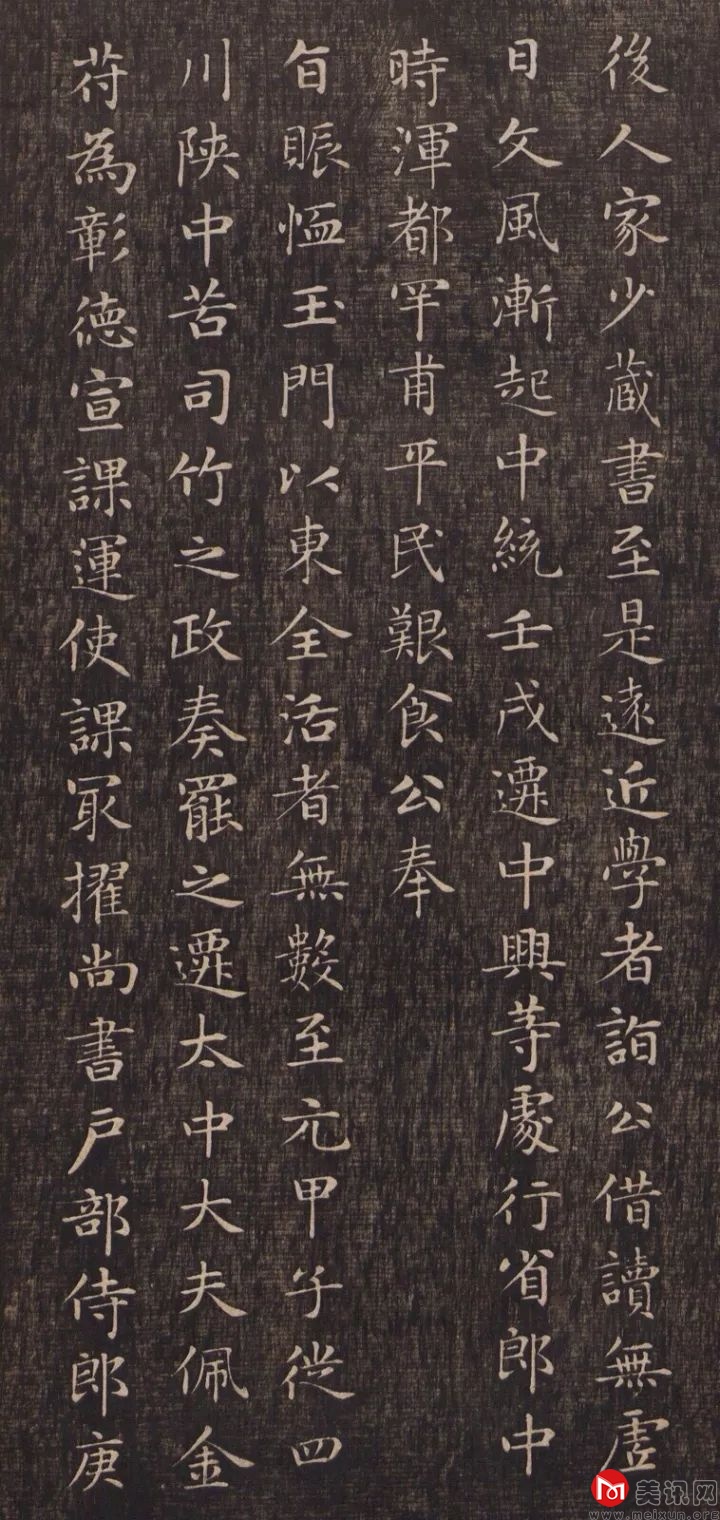 後人家少蔵書至是遠近學者詣公借讀無虗
日文風漸起中統壬戌遷中興等處行省郎中
時渾都罕甫平民艱食公奉
旨賑恤玉門以東全活者無數至元甲子從四
川陕中苦司竹之政奏罷之遷太中大夫佩金
苻為彰德宣課運使課冣擢尚書户部侍郎庚
美讯网
www.meixun.org